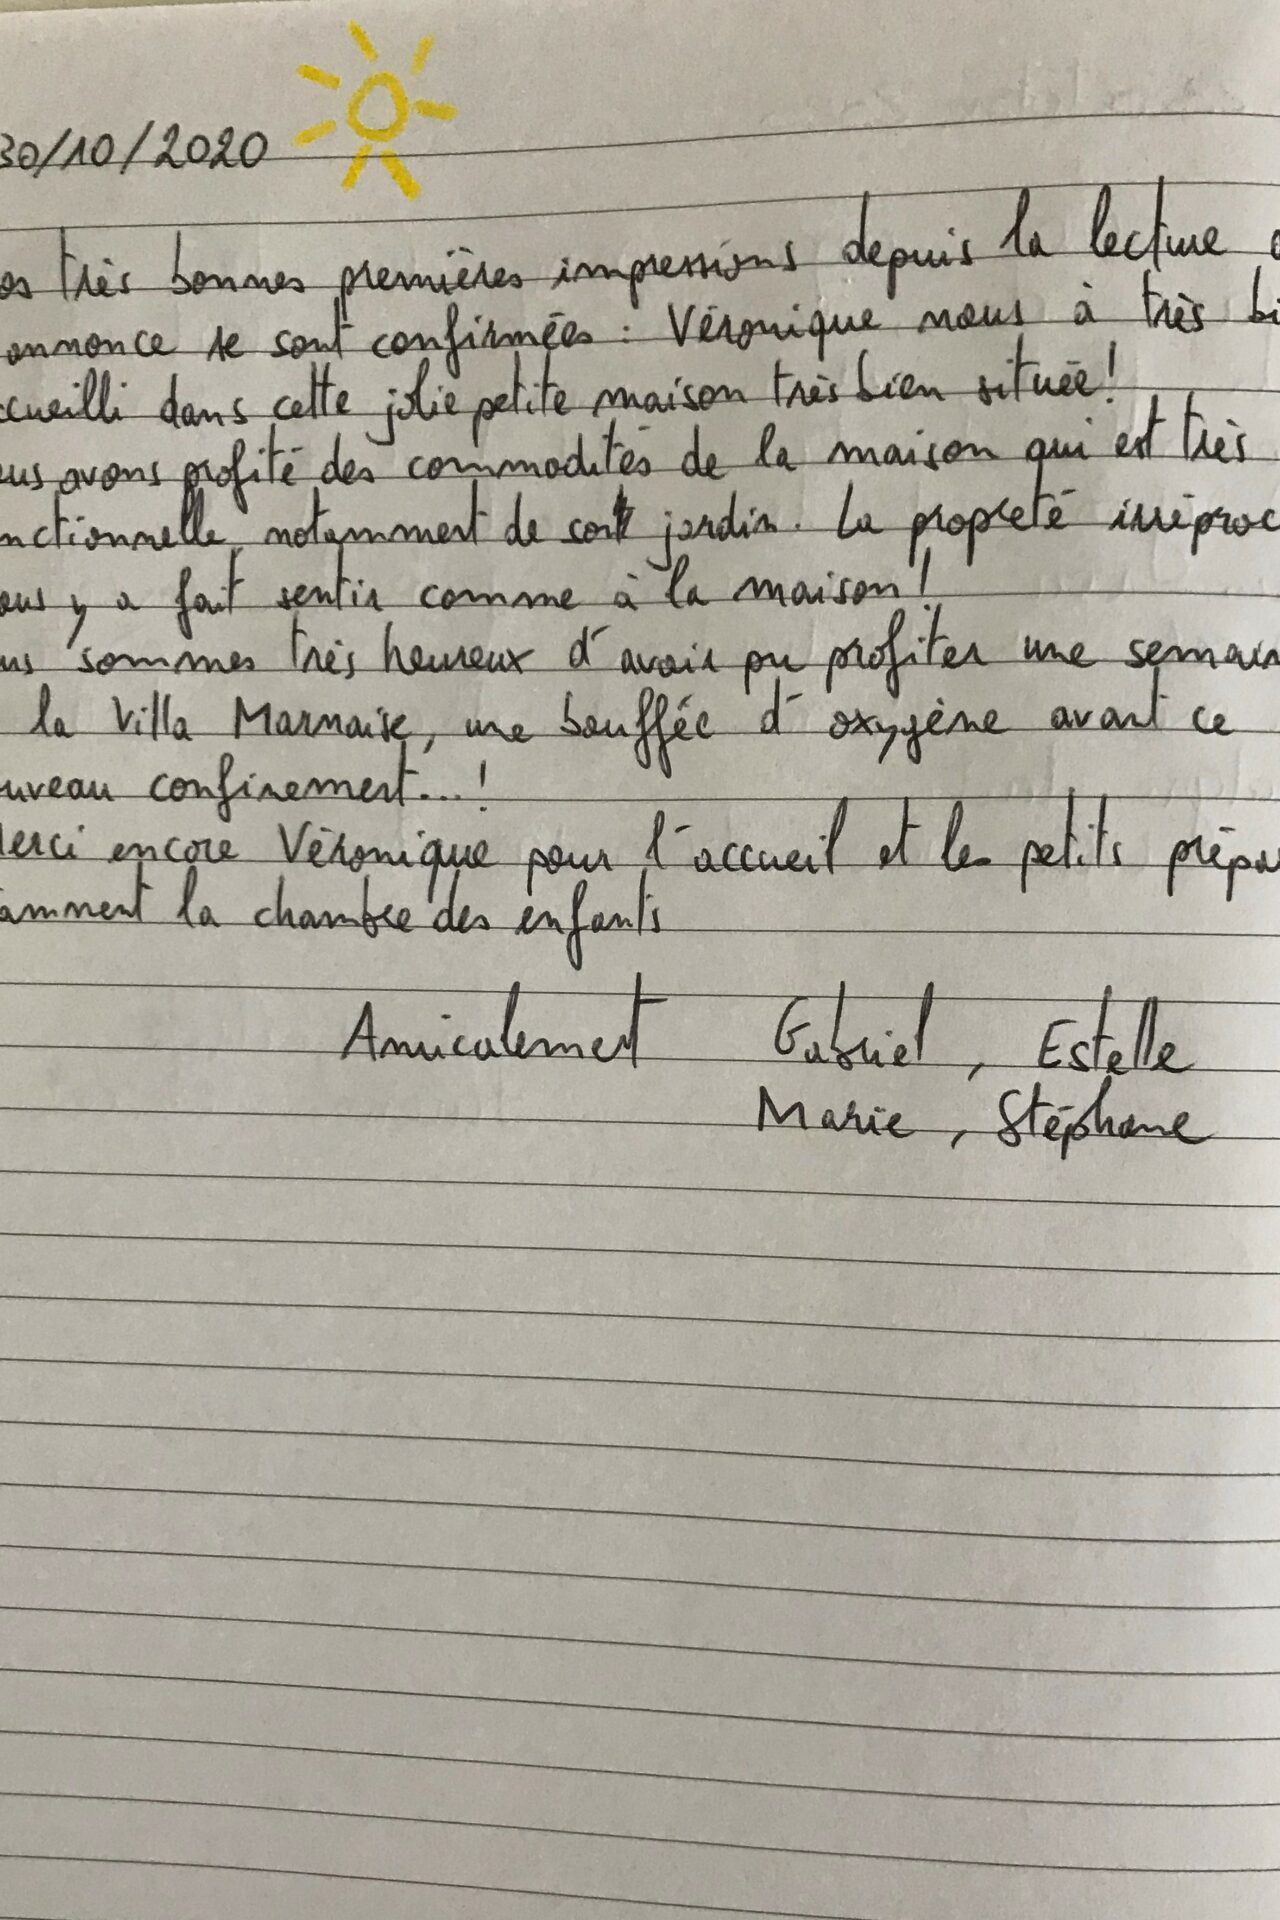 30/10/2020
os très bonnes premières impressions depuis la lecture
annonce se sont confirmées : Véronique nous à très bi
ccueilli dans cette jolie petite maison très bien située !
us avons profité des commodités de la maison qui est très
nctionnelle, notamment de son jardin. La propreté irréproc
ous y a fait sentir comme à la maison !
us sommes très heureux d'avoir pu profiter une semain
la Villa Marnaise, une bouffée d'oxygène avant ce
uveau confinement...!
erci encore Véronique pour l'accueil et les petits prépa
amment la chambre des enfants
Amicalement Gabriel, Estelle
Marie, Stéphane